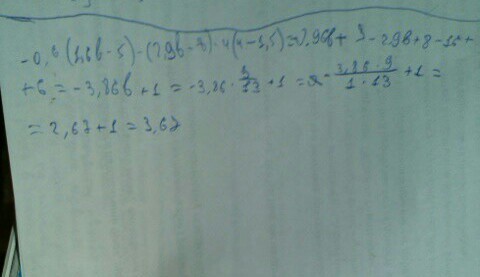 -0,6(1,6b-5)-(2,9b-8)-4(4-1,5)=0,96b+3-2,9b+8-16+
+6=-3,86b+1=-3,86·9/13+1=-3,86·9/1·13+1=
=2,67+1=3,67